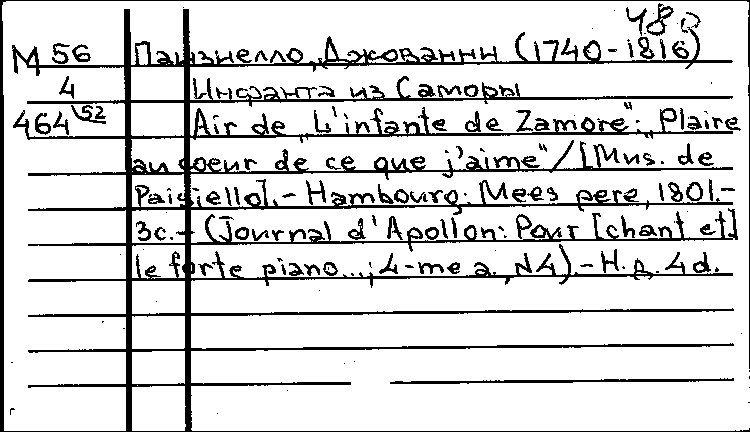 48
М 56 Паизиелло, Джованни (1740-1816)
4 Инфанта из Саморы
464 52 Air de „L'infante de Zamore": „Plaire
au coeur de ce que j'aime"/[Mus. de
Paisiello].- Hambourg: Mees pere, 1801.-
3c.- (Journal d'Apollon: Pour [chant et]
le forte piano...; 4-me a., N4).- Н.д. 4d.